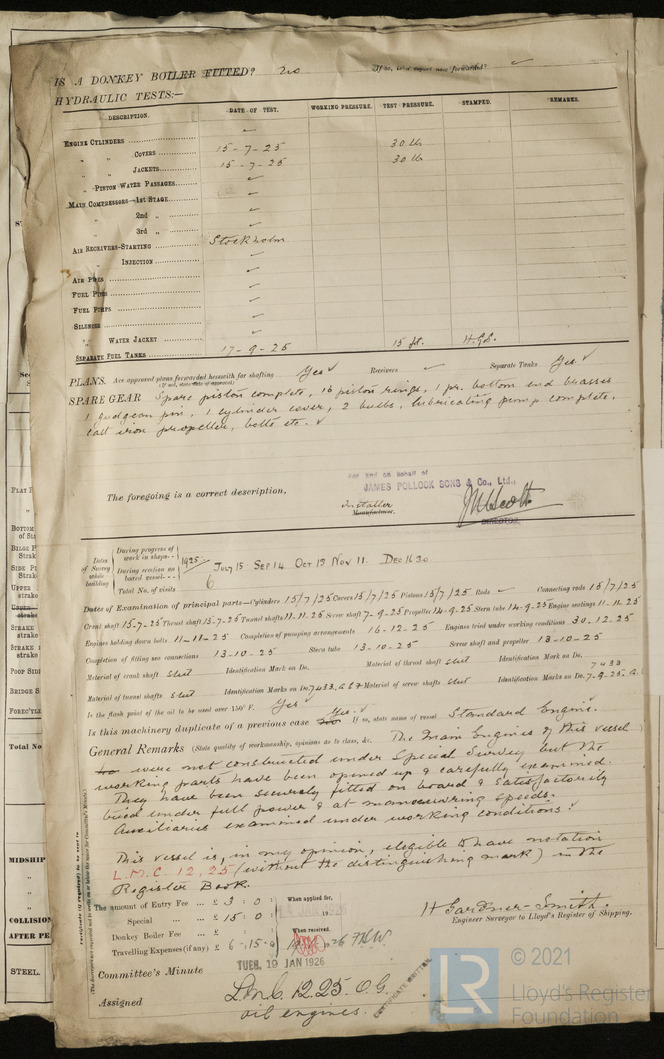 IS A DONKEY BOILER FITTED? No If so, is a report now forwarded? ✓
HYDRAULIC TESTS:—
DESCRIPTION. DATE OF TEST. WORKING PRESSURE. TEST PRESSURE. STAMPED. REMARKS.
ENGINE CYLINDERS ✓
" " COVERS 15-7-25 30 lb
" " JACKETS 15-7-25 30 lb
" PISTON WATER PASSAGES ✓
MAIN COMPRESSORS—1st STAGE ✓
" 2nd " ✓
" 3rd " ✓
AIR RECEIVERS—STARTING Stockholm
INJECTION ✓
AIR PIPES ✓
FUEL PIPES ✓
FUEL PUMPS ✓
SILENCER ✓
" WATER JACKET ✓
SEPARATE FUEL TANKS 17-9-25 15 ft. H.G.S.
PLANS. Are approved plans forwarded herewith for shafting Yes ✓ Receivers ✓ Separate Tanks Yes ✓
(If not, state date of approval)
SPARE GEAR Spare piston complete, 16 piston rings, 1 pr. bottom end brasses
1 gudgeon pin, 1 cylinder cover, 2 bulbs, lubricating pump complete,
cast iron propeller, bolts etc. ✓
For and on Behalf of
JAMES POLLOCK SONS & Co., Ltd.,
The foregoing is a correct description,
Installer
Manufacturer.
DIRECTOR.
Dates of Survey while building
During progress of work in shops--
During erection on board vessel---
Total No. of visits 6
1925 JULY 15 SEP 14 OCT 13 NOV 11. DEC 16 30
Dates of Examination of principal parts—Cylinders 15/7/25 Covers 15/7/25 Pistons 15/7/25 Rods ✓ Connecting rods 15/7/25
Crank shaft 15-7-25 Thrust shaft 15-7-25 Tunnel shafts 11-11-25 Screw shaft 7-9-25 Propeller 14-9-25 Stern tube 14-9-25 Engine seatings 11-11-25
Engines holding down bolts 11-11-25 Completion of pumping arrangements 16-12-25 Engines tried under working conditions 30-12-25
Completion of fitting sea connections 13-10-25 Stern tube 13-10-25 Screw shaft and propeller 13-10-25
Material of crank shaft Steel Identification Mark on Do. Material of thrust shaft Steel Identification Mark on Do.
Material of tunnel shafts Steel Identification Marks on Do. 7433 Material of screw shafts Steel Identification Marks on Do. 7433 7-9-25.
Is the flash point of the oil to be used over 150° F. Yes ✓
Is this machinery duplicate of a previous case Yes. ✓ If so, state name of vessel Standard Engine.
General Remarks (State quality of workmanship, opinions as to class, &c. The Main Engines of this vessel
were not constructed under Special Survey but the
working parts have been opened up & carefully examined.
They have been securely fitted on board & Satisfactorily
tried under full power & at manoeuvring speeds.
Auxiliaries examined under working conditions.
This vessel is, in my opinion, eligible to have notation
L.M.C. 12,25 (without the distinguishing mark) in the
Register Book.
The amount of Entry Fee ... £ 3 : 0 : When applied for,
Special ... £ 15 : 0 :
Donkey Boiler Fee ... £ : : When received,
Travelling Expenses (if any) £ 6 . 15 .
H Gardner-Smith.
Engineer Surveyor to Lloyd's Register of Shipping.
Committee's Minute TUES. 19 JAN 1926
Assigned L.M.C. 12.25. O.G.
oil engines.
CERTIFICATE WRITTEN
LR
© 2021
Lloyd's Register
Foundation
PLAT
BOTTOM
of St
BILGE
Strak
SIDE P
UPPER
STRAKE
strake
POOP SID
BRIDGE S
FORECTLE
Total No
MIDSHIP
COLLISION
AFTER PE
STEEL.